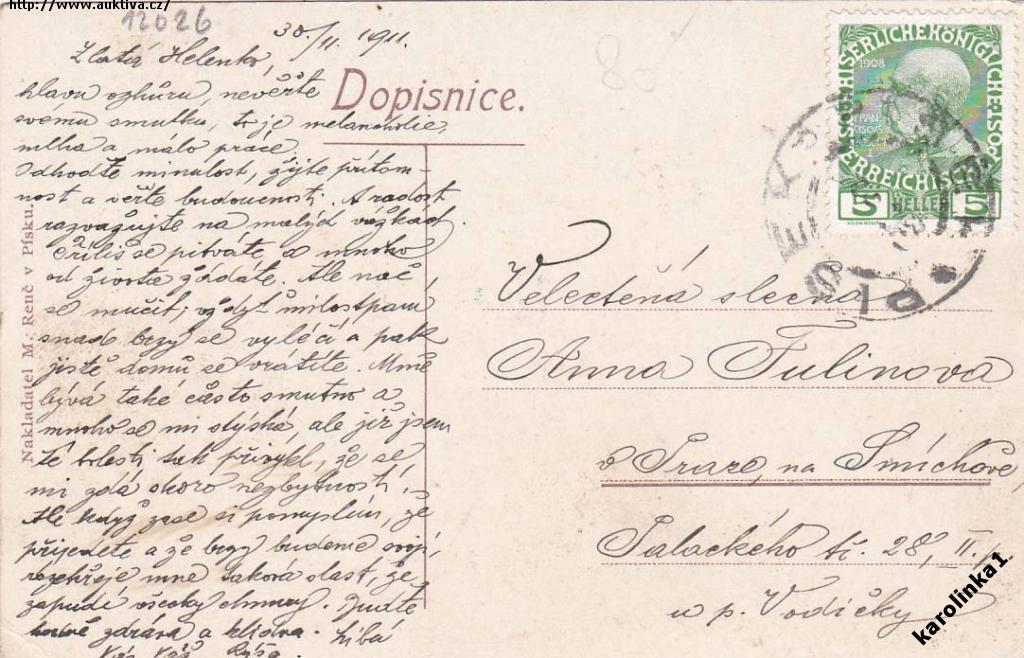 http://www.auktiva.cz/
12026
30/11. 1911.
Zlatá Helenko,
hlavu vzhůru, nevěřte
svému smutku, to je melancholie,
mlha a málo práce.
Odhoďte minulost, žijte přítom-
nost a věřte budoucnosti. A radost
rozvažujte na malých vážkách.
Příliš se pitváte a mnoho
od života žádáte. Ale nač
se mučit, vždyť milostpaní
snad brzy se vyléčí a pak
jistě domů se vrátíte. Mně
bývá také často smutno a
mnoho se mi stýská, ale již jsem
té bolesti tak přivykl, že se
mi zdá skoro nezbytností.
Ale když zase si pomyslím, že
přijedete a že brzy budeme svoji,
rozehřeje mne taková slast, že
zapudí všecky chmury. Buďte
hodně zdráva a klidna. Líbá
Vás Váš
Dopisnice.
Nakladatel M. Renč v Písku.
1908
5 HELLER 5
PÍSEK
Velectěná slečna
Anna Fulínova
v Praze, na Smíchově,
Palackého tř. 28, II.
u p. Vodičky
karolinka1